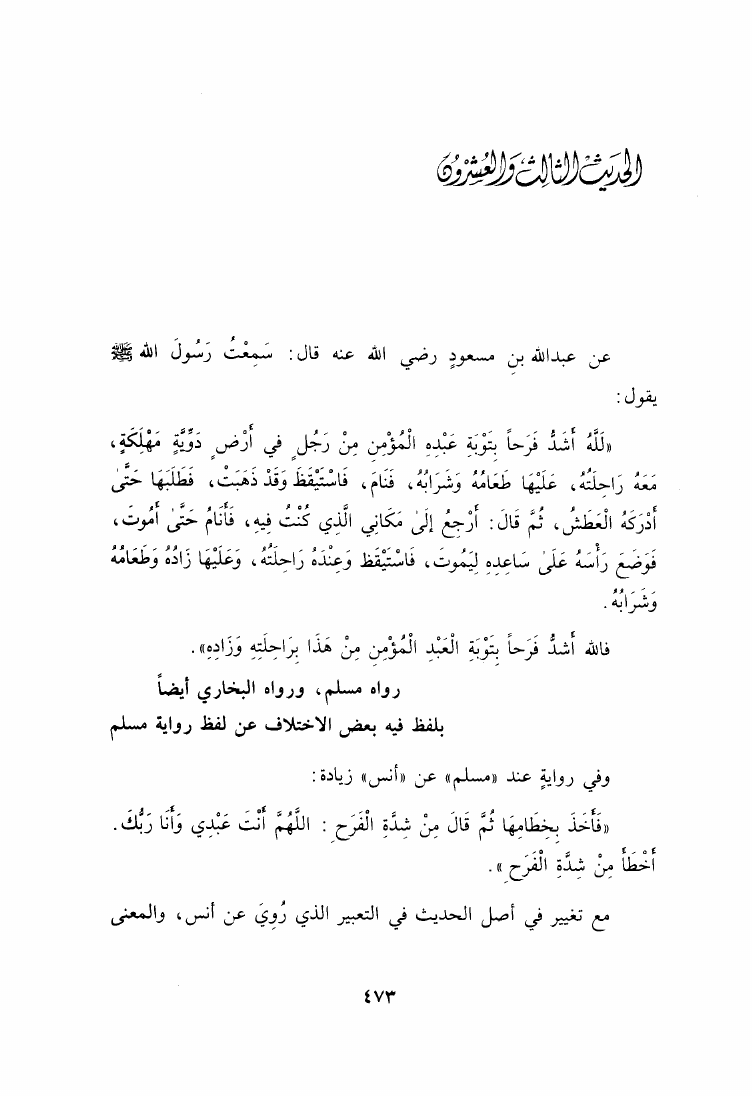 الحديث الثالث والعشرون
عن عبدالله بنِ مسعودٍ رضي الله عنه قال: سَمِعْتُ رَسُولَ الله ﷺ
يقول:
«لَلَّهُ أَشَدُّ فَرَحاً بِتَوْبَةِ عَبْدِهِ الْمُؤْمِنِ مِنْ رَجُلٍ في أَرْضٍ دَوِّيَّةٍ مَهْلَكَةٍ،
مَعَهُ رَاحِلَتُهُ، عَلَيْهَا طَعَامُهُ وَشَرَابُهُ، فَنَامَ، فَاسْتَيْقَظَ وَقَدْ ذَهَبَتْ، فَطَلَبَهَا حَتَّىٰ
أَدْرَكَهُ الْعَطَشُ، ثُمَّ قَالَ: أَرْجِعُ إلَىٰ مَكَانِي الَّذِي كُنْتُ فِيهِ، فَأَنَامُ حَتَّىٰ أَمُوتَ،
فَوَضَعَ رَأْسَهُ عَلَىٰ سَاعِدِهِ لِيَمُوتَ، فَاسْتَيْقَظ وَعِنْدَهُ رَاحِلَتُهُ، وَعَلَيْهَا زَادُهُ وَطَعَامُهُ
وَشَرَابُهُ.
فالله أَشدُّ فَرَحاً بِتَوْبَةِ الْعَبْدِ الْمُؤْمِنِ مِنْ هَذَا بِرَاحِلَتِهِ وَزَادِهِ».
رواه مسلم، ورواه البخاري أيضاً
بلفظ فيه بعض الاختلاف عن لفظ رواية مسلم
وفي روايةٍ عند «مسلم» عن «أنس» زيادة:
«فَأَخَذَ بِخطَامِهَا ثُمَّ قَالَ مِنْ شِدَّةِ الْفَرَحِ: اللَّهُمَّ أَنْتَ عَبْدِي وَأَنَا رَبُّكَ.
أَخْطَأَ مِنْ شِدَّةِ الْفَرَحِ».
مع تغيير في أصل الحديث في التعبير الذي رُوِيَ عن أنس، والمعنى
٤٧٣